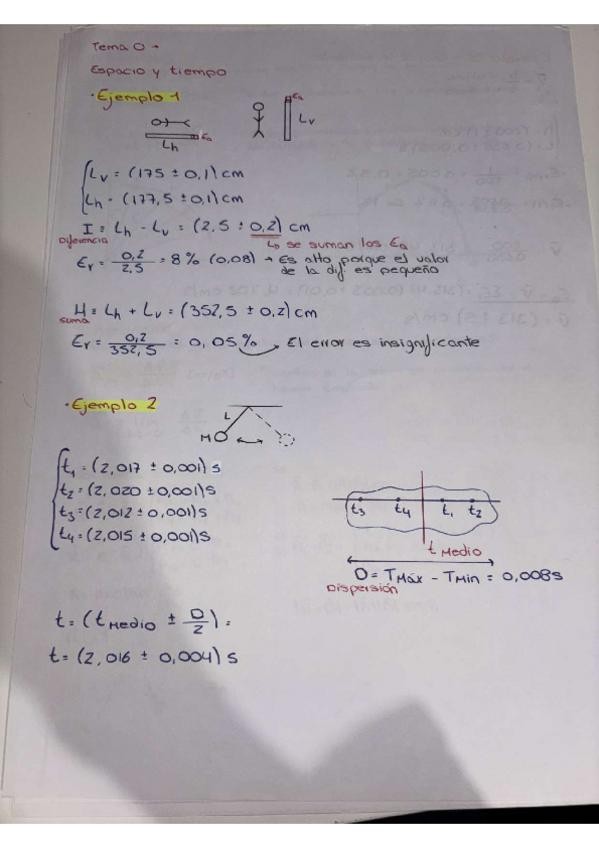 Tema 0→
Espacio y tiempo
· Ejemplo 1
Ea
Lh
Ea
Lv
Lv = (175 ± 0,1) cm
Lh = (177,5 ± 0,1) cm
I = Lh - Lv = (2,5 ± 0,2) cm
Diferencia
↳ se suman los Ea
Er = 0,2/2,5 = 8% (0,08) → Es alto porque el valor
de la dif. es pequeño
H = Lh + Lv = (352,5 ± 0,2) cm
suma
Er = 0,2/352,5 = 0,05% → El error es insignificante
· Ejemplo 2
L
M
t1 = (2,017 ± 0,001) s
t2 = (2,020 ± 0,001) s
t3 = (2,012 ± 0,001) s
t4 = (2,015 ± 0,001) s
t3 t4 t1 t2
t Medio
D = TMáx - TMin = 0,008s
Dispersión
t = (tMedio ± D/2) =
t = (2,016 ± 0,004) s